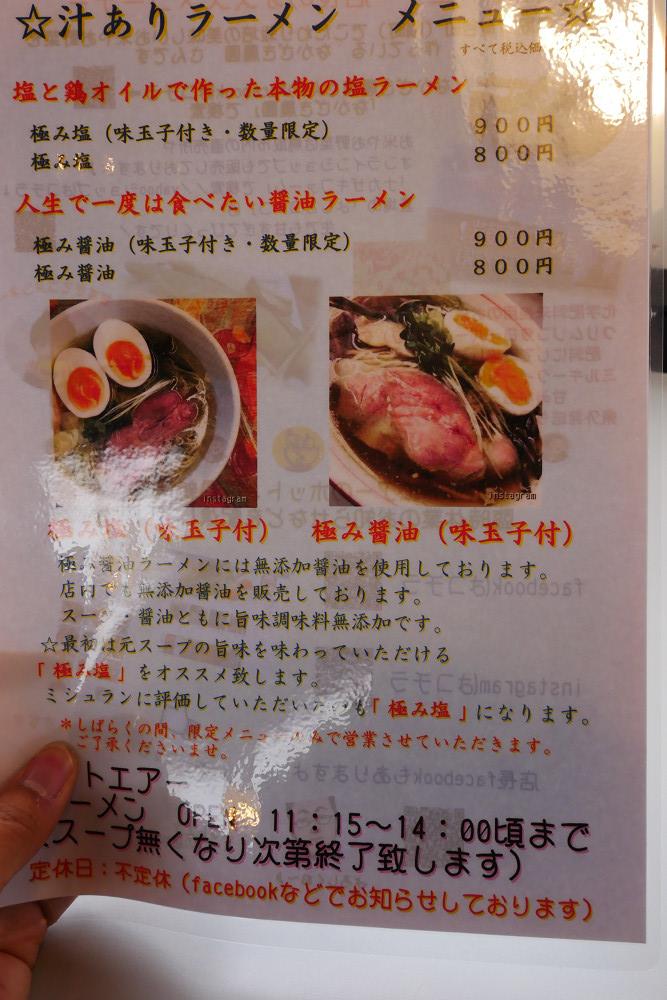 ☆汁ありラーメン メニュー☆
すべて税込価
塩と鶏オイルで作った本物の塩ラーメン
極み塩（味玉子付き・数量限定） ９００円
極み塩 ８００円
人生で一度は食べたい醤油ラーメン
極み醤油（味玉子付き・数量限定） ９００円
極み醤油 ８００円
instagram instagram
極み塩（味玉子付） 極み醤油（味玉子付）
極み醤油ラーメンには無添加醤油を使用しております。
店内でも無添加醤油を販売しております。
スープ・醤油ともに旨味調味料無添加です。
☆最初は元スープの旨味を味わっていただける
「極み塩」をオススメ致します。
ミシュランに評価していただいたのも「極み塩」になります。
＊しばらくの間、限定メニューのみで営業させていただきます。
ご了承くださいませ。
トエアー
ーメン OPEN １１：１５〜１４：００頃まで
スープ無くなり次第終了致します）
定休日：不定休（facebookなどでお知らせしております）